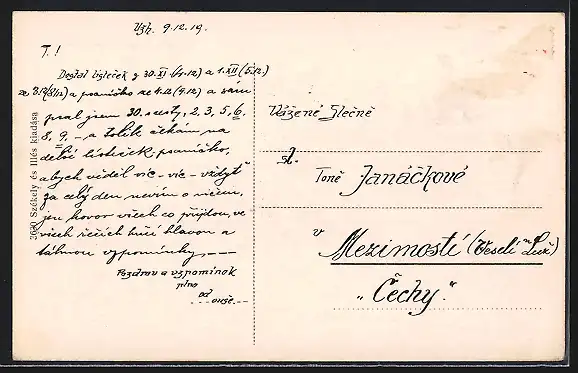 Uzh. 9.12.19.
T.!
Dostal lísteček z 30.XI (4.12) a 1.XII (5.12.)
ze 3.12 a psaníčko ze 4.12 (9.12) a sám
psal jsem 30. 2, 3, 5, 6,
8, 9, – a tolik čekám na
delší lísteček, psaníčko,
abych věděl víc – víc – vždyť
za celý den nevím o ničem,
jen hovor všech co přijdou, ve
všech řečích hučí hlavou a
táhnou vzpomínky, — —
Pozdrav a vzpomínek
plno
od
Vážené Slečně
sl.
Toně Janáčkové
v
Mezimostí (Veselí n Luž)
„Čechy“.
2630 Székely és Illés kiadása